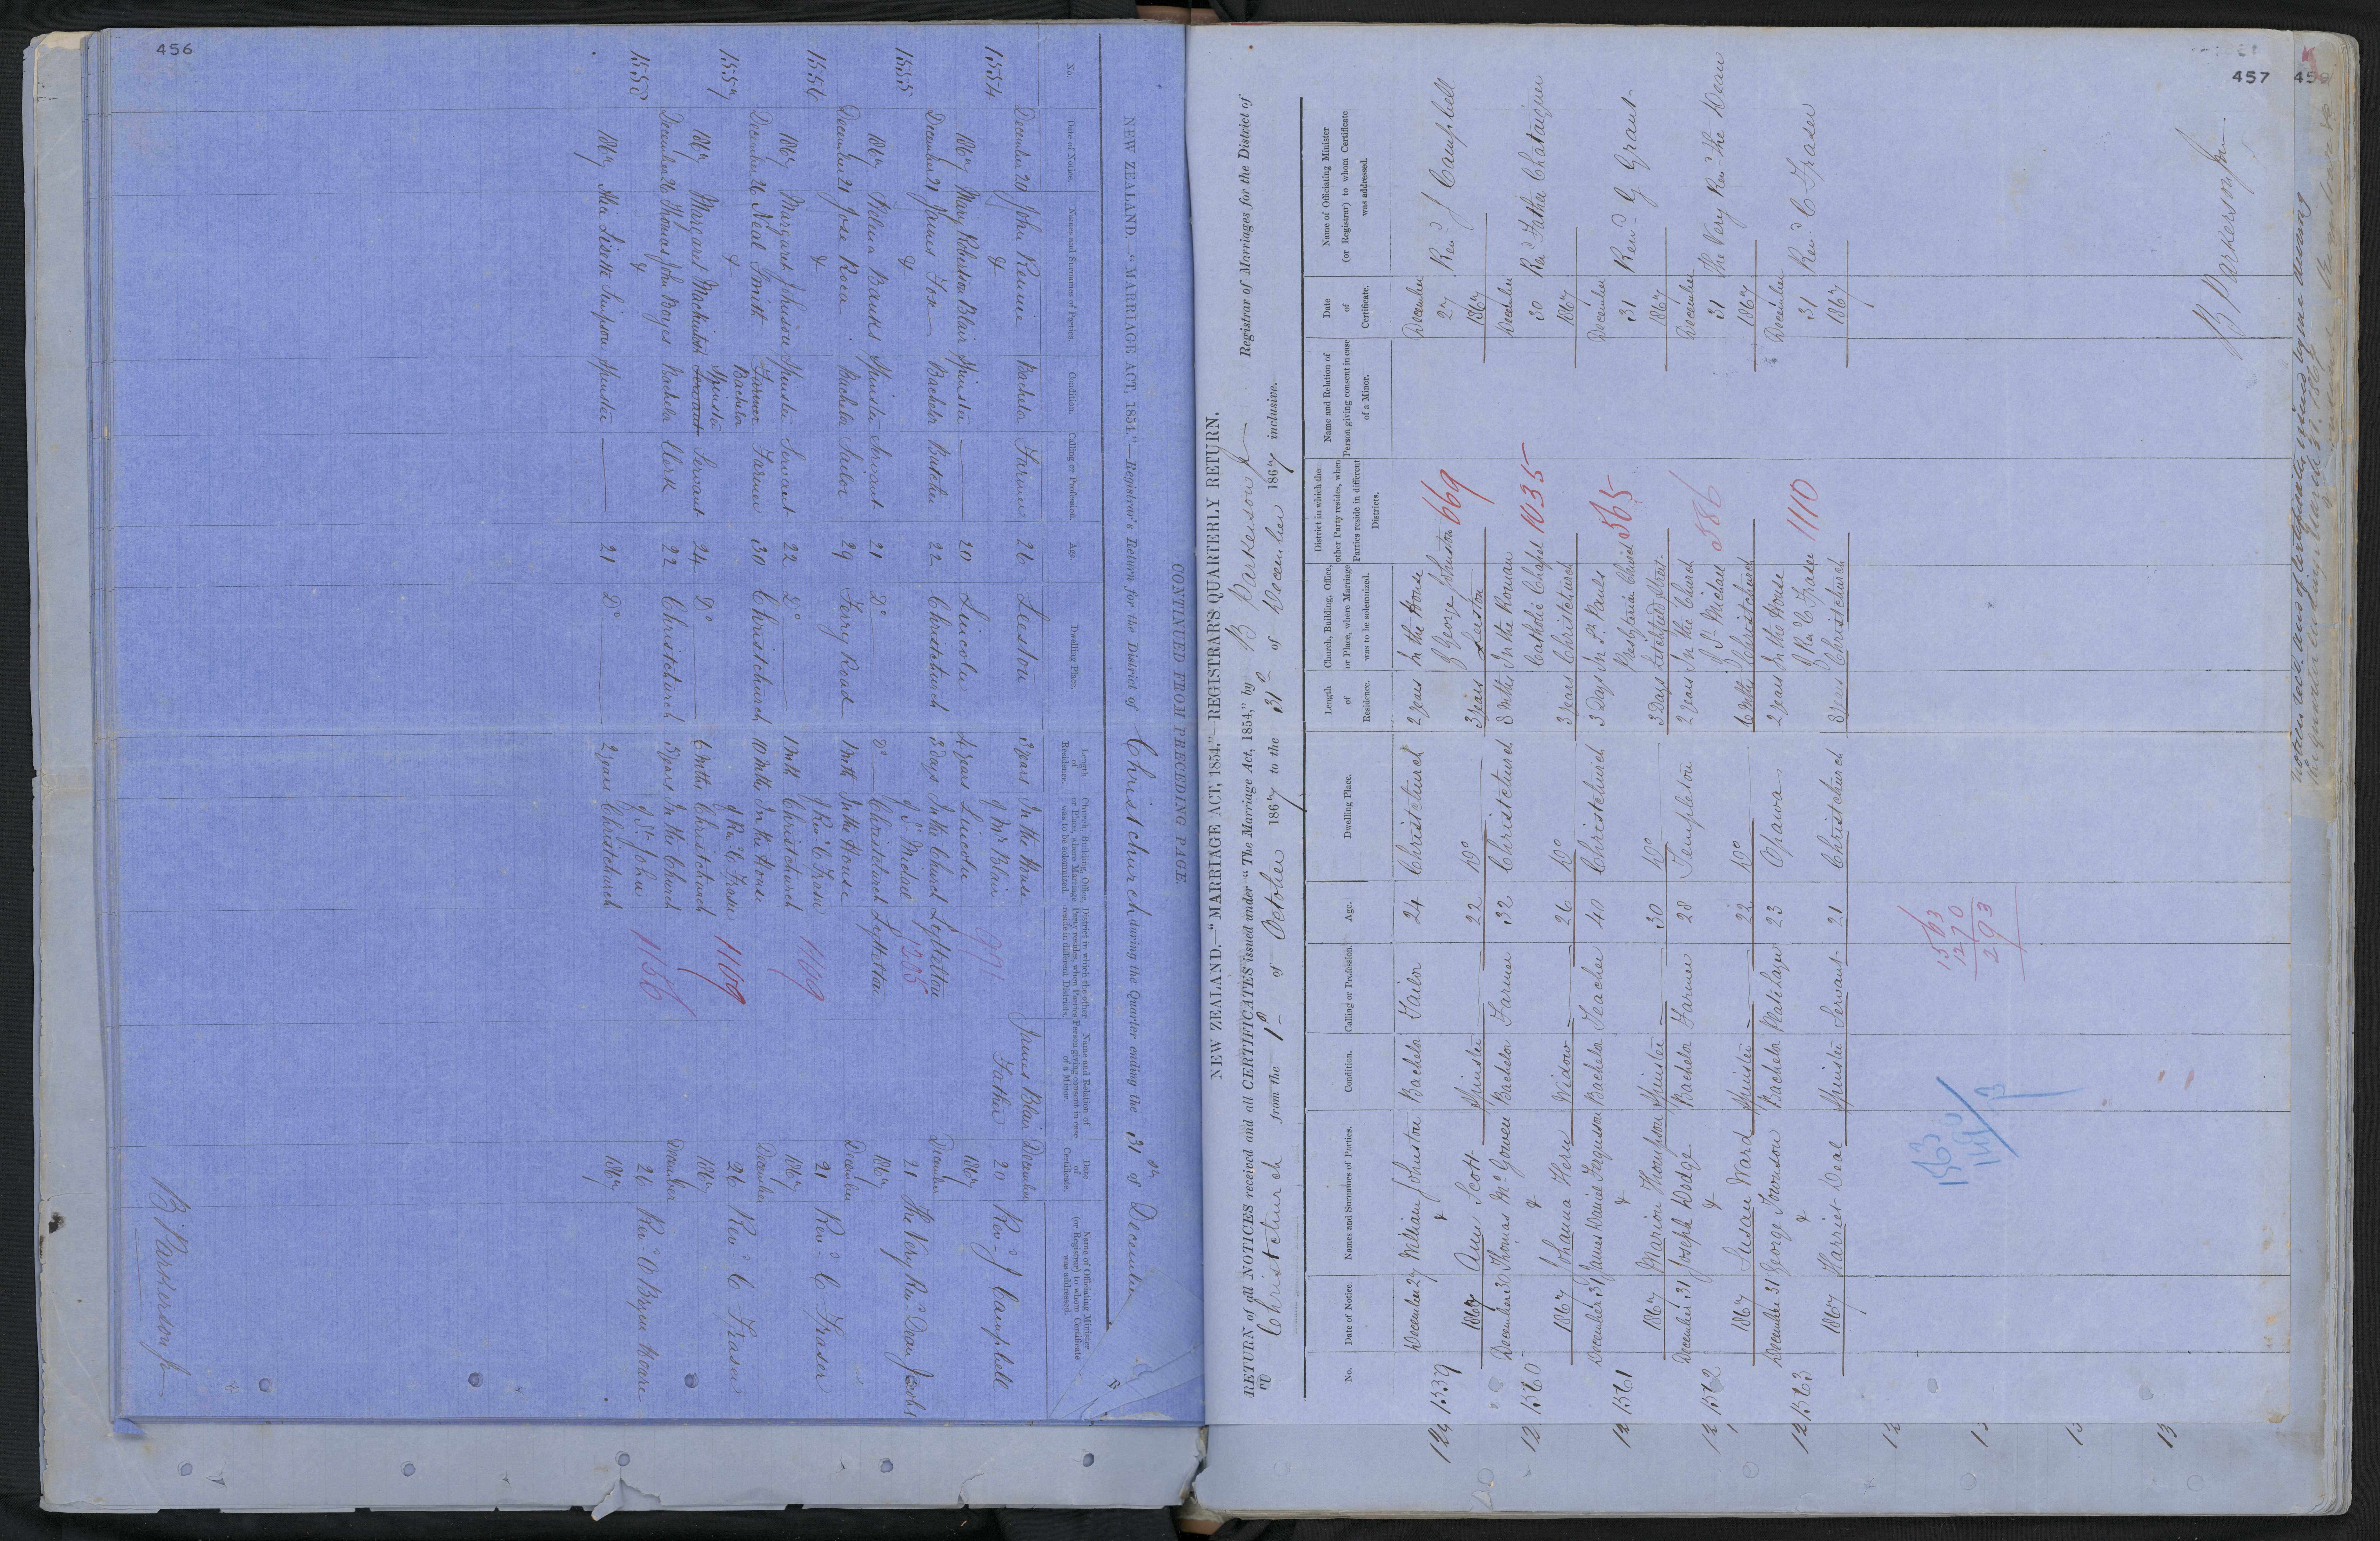 456
CONTINUED FROM PRECEDING PAGE.
NEW ZEALAND.—"MARRIAGE ACT, 1854."—Registrar's Return for the District of Christchurch during the Quarter ending the 31st of December
No.
Date of Notice.
Names and Surnames of Parties.
Condition.
Calling or Profession.
Age.
Dwelling Place.
Length of Residence.
Church, Building, Office, or Place, where Marriage was to be solemnized.
District in which the other Party resides, when Parties reside in different Districts.
Name and Relation of Person giving consent in case of a Minor.
Date of Certificate.
Name of Officiating Minister (or Registrar) to whom Certificate was addressed.
1554 December 20 John Rennie Bachelor Farmer 26 Leeston 3 years In the House James Blair December
& of Mr Blair 991 Father 20 Revd J Campbell
1867 Mary Robertson Blair Spinster — 20 Lincoln 4 years Lincoln 1867
1555 December 21 James Fise Bachelor Butcher 22 Christchurch 3 days In the Church Lyttelton December
& of St Michael 1235 21 The Very Revd Dean Jacobs
1867 Helena Banks Spinster Servant 21 Do Do Christchurch Lyttelton 1867
1556 December 21 Jose Roca Bachelor Sailor 29 Ferry Road 1 Mth In the House December
& of Revd C Fraser 1109 21 Revd C Fraser
1867 Margaret Johnson Spinster Servant 22 Do 1 Mth Christchurch 1867
1557 December 26 Neal Smith Farmer Bachelor Farmer 30 Christchurch 10 Mths In the House December
& of Revd C Fraser 1109 26 Revd C Fraser
1867 Margaret Mackintosh Servant Spinster Servant 24 Do 6 Mths Christchurch 1867
1558 December 26 Thomas John Boyes Bachelor Clerk 22 Christchurch 5 years In the Church December
& of St John 1156 26 Revd O'Bryen Hoare
1867 Lisette Simpson Spinster — 21 Do 2 years Christchurch 1867
B Parkerson Jr
457
NEW ZEALAND.—"MARRIAGE ACT, 1854."—REGISTRAR'S QUARTERLY RETURN.
RETURN of all NOTICES received and all CERTIFICATES issued under "The Marriage Act, 1854," by B Parkerson Jr Registrar of Marriages for the District of
Christchurch from the 1st of October 1867 to the 31st of December 1867 inclusive.
No.
Date of Notice.
Names and Surnames of Parties.
Condition.
Calling or Profession.
Age.
Dwelling Place.
Length of Residence.
Church, Building, Office, or Place, where Marriage was to be solemnized.
District in which the other Party resides, when Parties reside in different Districts.
Name and Relation of Person giving consent in case of a Minor.
Date of Certificate.
Name of Officiating Minister (or Registrar) to whom Certificate was addressed.
1559 December 27 William Johnston Bachelor Tailor 24 Christchurch 2 years In the House December
& of George Johnston 669 27 Revd J Campbell
1867 Ann Scott Spinster — 22 Do 3 years Leeston 1867
1560 December 30 Thomas McGowen Bachelor Farmer 32 Christchurch 8 Mths In the Roman December
& Catholic Chapel 1035 30 Rev Father Chataigner
1867 Johanna Hern Widow — 26 Do 3 years Christchurch 1867
1561 December 31 James Daniel Ferguson Bachelor Teacher 40 Christchurch 3 Days In St Pauls December
& Presbyterian Church 565 31 Revd G Grant
1867 Marion Thompson Spinster — 30 Do 3 Days Lichfield Street 1867
1562 December 31 Joseph Dodge Bachelor Farmer 28 Templeton 2 years In the Church December
& of St Michael 586 31 The Very Revd the Dean
1867 Susan Ward Spinster — 22 Do 6 Mths Christchurch 1867
1563 December 31 George Townson Bachelor Platelayer 23 Opawa 2 years In the House December
& of Rev C Fraser 1110 31 Revd C Fraser
1867 Harriet Deal Spinster Servant 21 Christchurch 3 years Christchurch 1867
1563
1270
293
1563
B Parkerson Jr